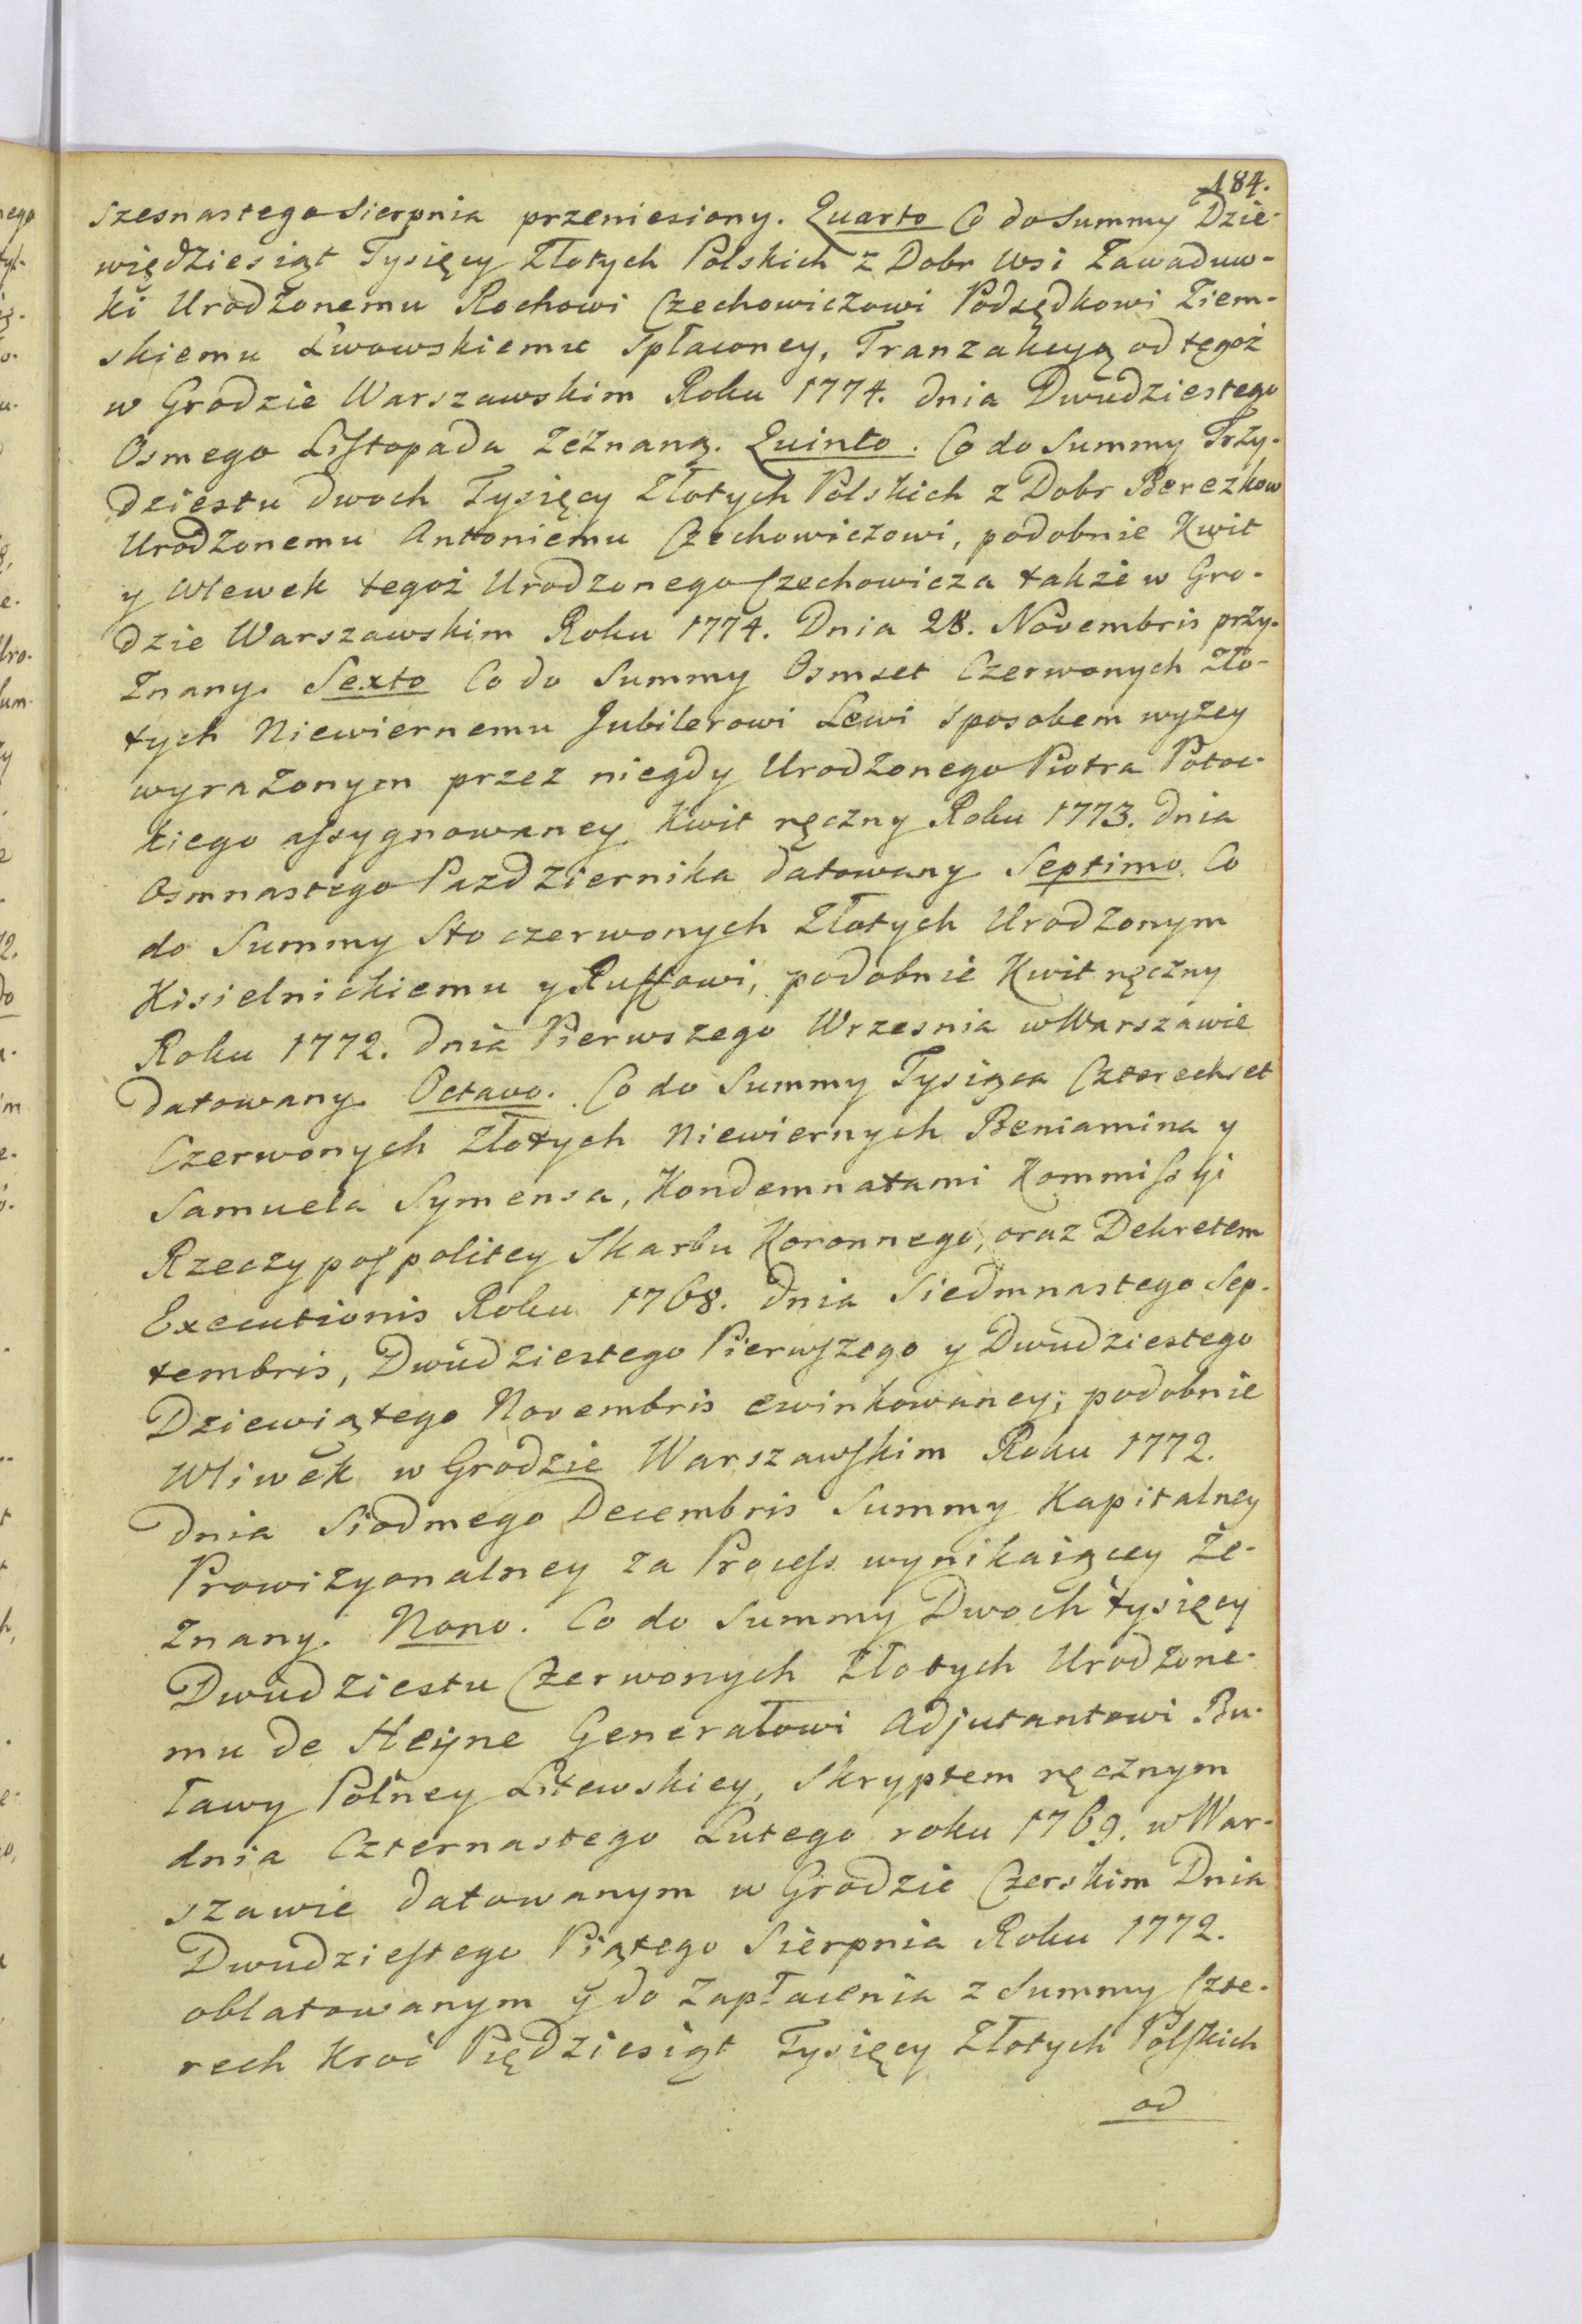 184.
szesnastego Sierpnia przeniesiony. Quarto Co do Summy Dzie-
więdziesiąt Tysięcy Złotych Polskich z Dobr Wsi Zawaduw-
ki Urodzonemu Rochowi Czechowiczowi Podsędkowi Ziem-
skiemu Lwowskiemu Spłaconey, Tranzakcyą od tegoż
w Grodzie Warszawskim Roku 1774. dnia Dwudziestego
Osmego Listopada zeznaną. Quinto. Co do Summy Trzy-
dziestu dwoch Tysięcy Złotych Polskich z Dobr Berezkow
Urodzonemu Antoniemu Czechowiczowi, podobnie Kwit
y Wlewek tegoż Urodzonego Czechowicza także w Gro-
dzie Warszawskim Roku 1774. Dnia 28. Novembris przy-
znany. Sexto Co do Summy Osmset Czerwonych Zło-
tych Niewiernemu Jubilerowi Lewi sposobem wyżey
wyrażonym przez niegdy Urodzonego Piotra Potoc-
kiego assygnowaney Kwit ręczny Roku 1773. dnia
Osmnastego Pazdziernika datowany Septimo. Co
do Summy Sto czerwonych Złotych Urodzonym
Kisielnickiemu y Ruffowi, podobnie Kwit ręczny
Roku 1772. dnia Pierwszego Wrzesnia w Warszawie
datowany. Octavo. Co do Summy Tysiąca Czterechset
Czerwonych Złotych Niewiernych Beniamina y
Samuela Symensa, Kondemnatami Kommissyi
Rzeczypospolitey Skarbu Koronnego, oraz Dekretem
Executionis Roku 1768. dnia Siedmnastego Sep-
tembris, Dwudziestego Pierwszego y Dwudziestego
Dziewiątego Novembris ewinkowaney; podobnie
Wliwek w Grodzie Warszawskim Roku 1772.
dnia Siodmego Decembris Summy Kapitalney
Prowizyonalney za Process wynikaiącey ze-
znany. Nono. Co do Summy Dwoch tysięcy
Dwudziestu Czerwonych Złotych Urodzone-
mu de Heyne Generałowi Adjutantowi Bu-
ławy Polney Litewskiey, Skryptem ręcznym
dnia Czternastego Lutego roku 1769. w War-
szawie datowanym w Grodzie Czerskim Dnia
Dwudziestego Piątego Sierpnia Roku 1772.
oblatowanym y do Zapłacenia z Summy Czte-
rech Kroć Piędziesiąt Tysięcy Złotych Polskich
od